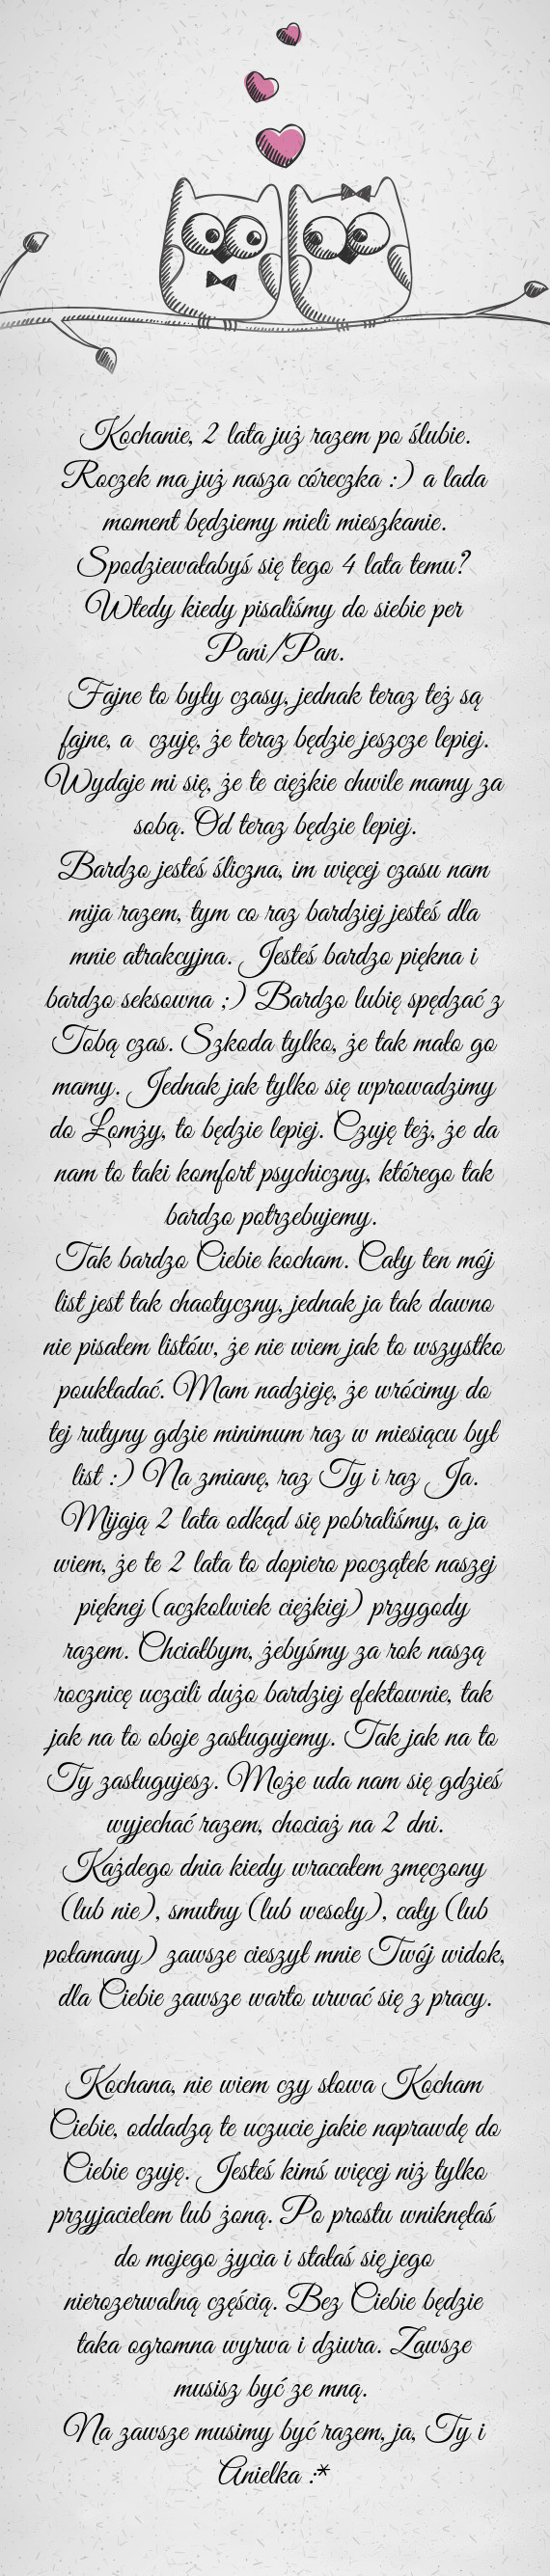 Kochanie, 2 lata już razem po ślubie.
Roczek ma już nasza córeczka :) a lada
moment będziemy mieli mieszkanie.
Spodziewałabyś się tego 4 lata temu?
Wtedy kiedy pisaliśmy do siebie per
Pani/Pan.
Fajne to były czasy, jednak teraz też są
fajne, a czuję, że teraz będzie jeszcze lepiej.
Wydaje mi się, że te ciężkie chwile mamy za
sobą. Od teraz będzie lepiej.
Bardzo jesteś śliczna, im więcej czasu nam
mija razem, tym co raz bardziej jesteś dla
mnie atrakcyjna. Jesteś bardzo piękna i
bardzo seksowna ;) Bardzo lubię spędzać z
Tobą czas. Szkoda tylko, że tak mało go
mamy. Jednak jak tylko się wprowadzimy
do Łomży, to będzie lepiej. Czuję też, że da
nam to taki komfort psychiczny, którego tak
bardzo potrzebujemy.
Tak bardzo Ciebie kocham. Cały ten mój
list jest tak chaotyczny, jednak ja tak dawno
nie pisałem listów, że nie wiem jak to wszystko
poukładać. Mam nadzieję, że wrócimy do
tej rutyny gdzie minimum raz w miesiącu był
list :) Na zmianę, raz Ty i raz Ja.
Mijają 2 lata odkąd się pobraliśmy, a ja
wiem, że te 2 lata to dopiero początek naszej
pięknej (aczkolwiek ciężkiej) przygody
razem. Chciałbym, żebyśmy za rok naszą
rocznicę uczcili dużo bardziej efektownie, tak
jak na to oboje zasługujemy. Tak jak na to
Ty zasługujesz. Może uda nam się gdzieś
wyjechać razem, chociaż na 2 dni.
Każdego dnia kiedy wracałem zmęczony
(lub nie), smutny (lub wesoły), cały (lub
połamany) zawsze cieszył mnie Twój widok,
dla Ciebie zawsze warto urwać się z pracy.

Kochana, nie wiem czy słowa Kocham
Ciebie, oddadzą te uczucie jakie naprawdę do
Ciebie czuję. Jesteś kimś więcej niż tylko
przyjacielem lub żoną. Po prostu wniknęłaś
do mojego życia i stałaś się jego
nierozerwalną częścią. Bez Ciebie będzie
taka ogromna wyrwa i dziura. Zawsze
musisz być ze mną.
Na zawsze musimy być razem, ja, Ty i
Anielka :*